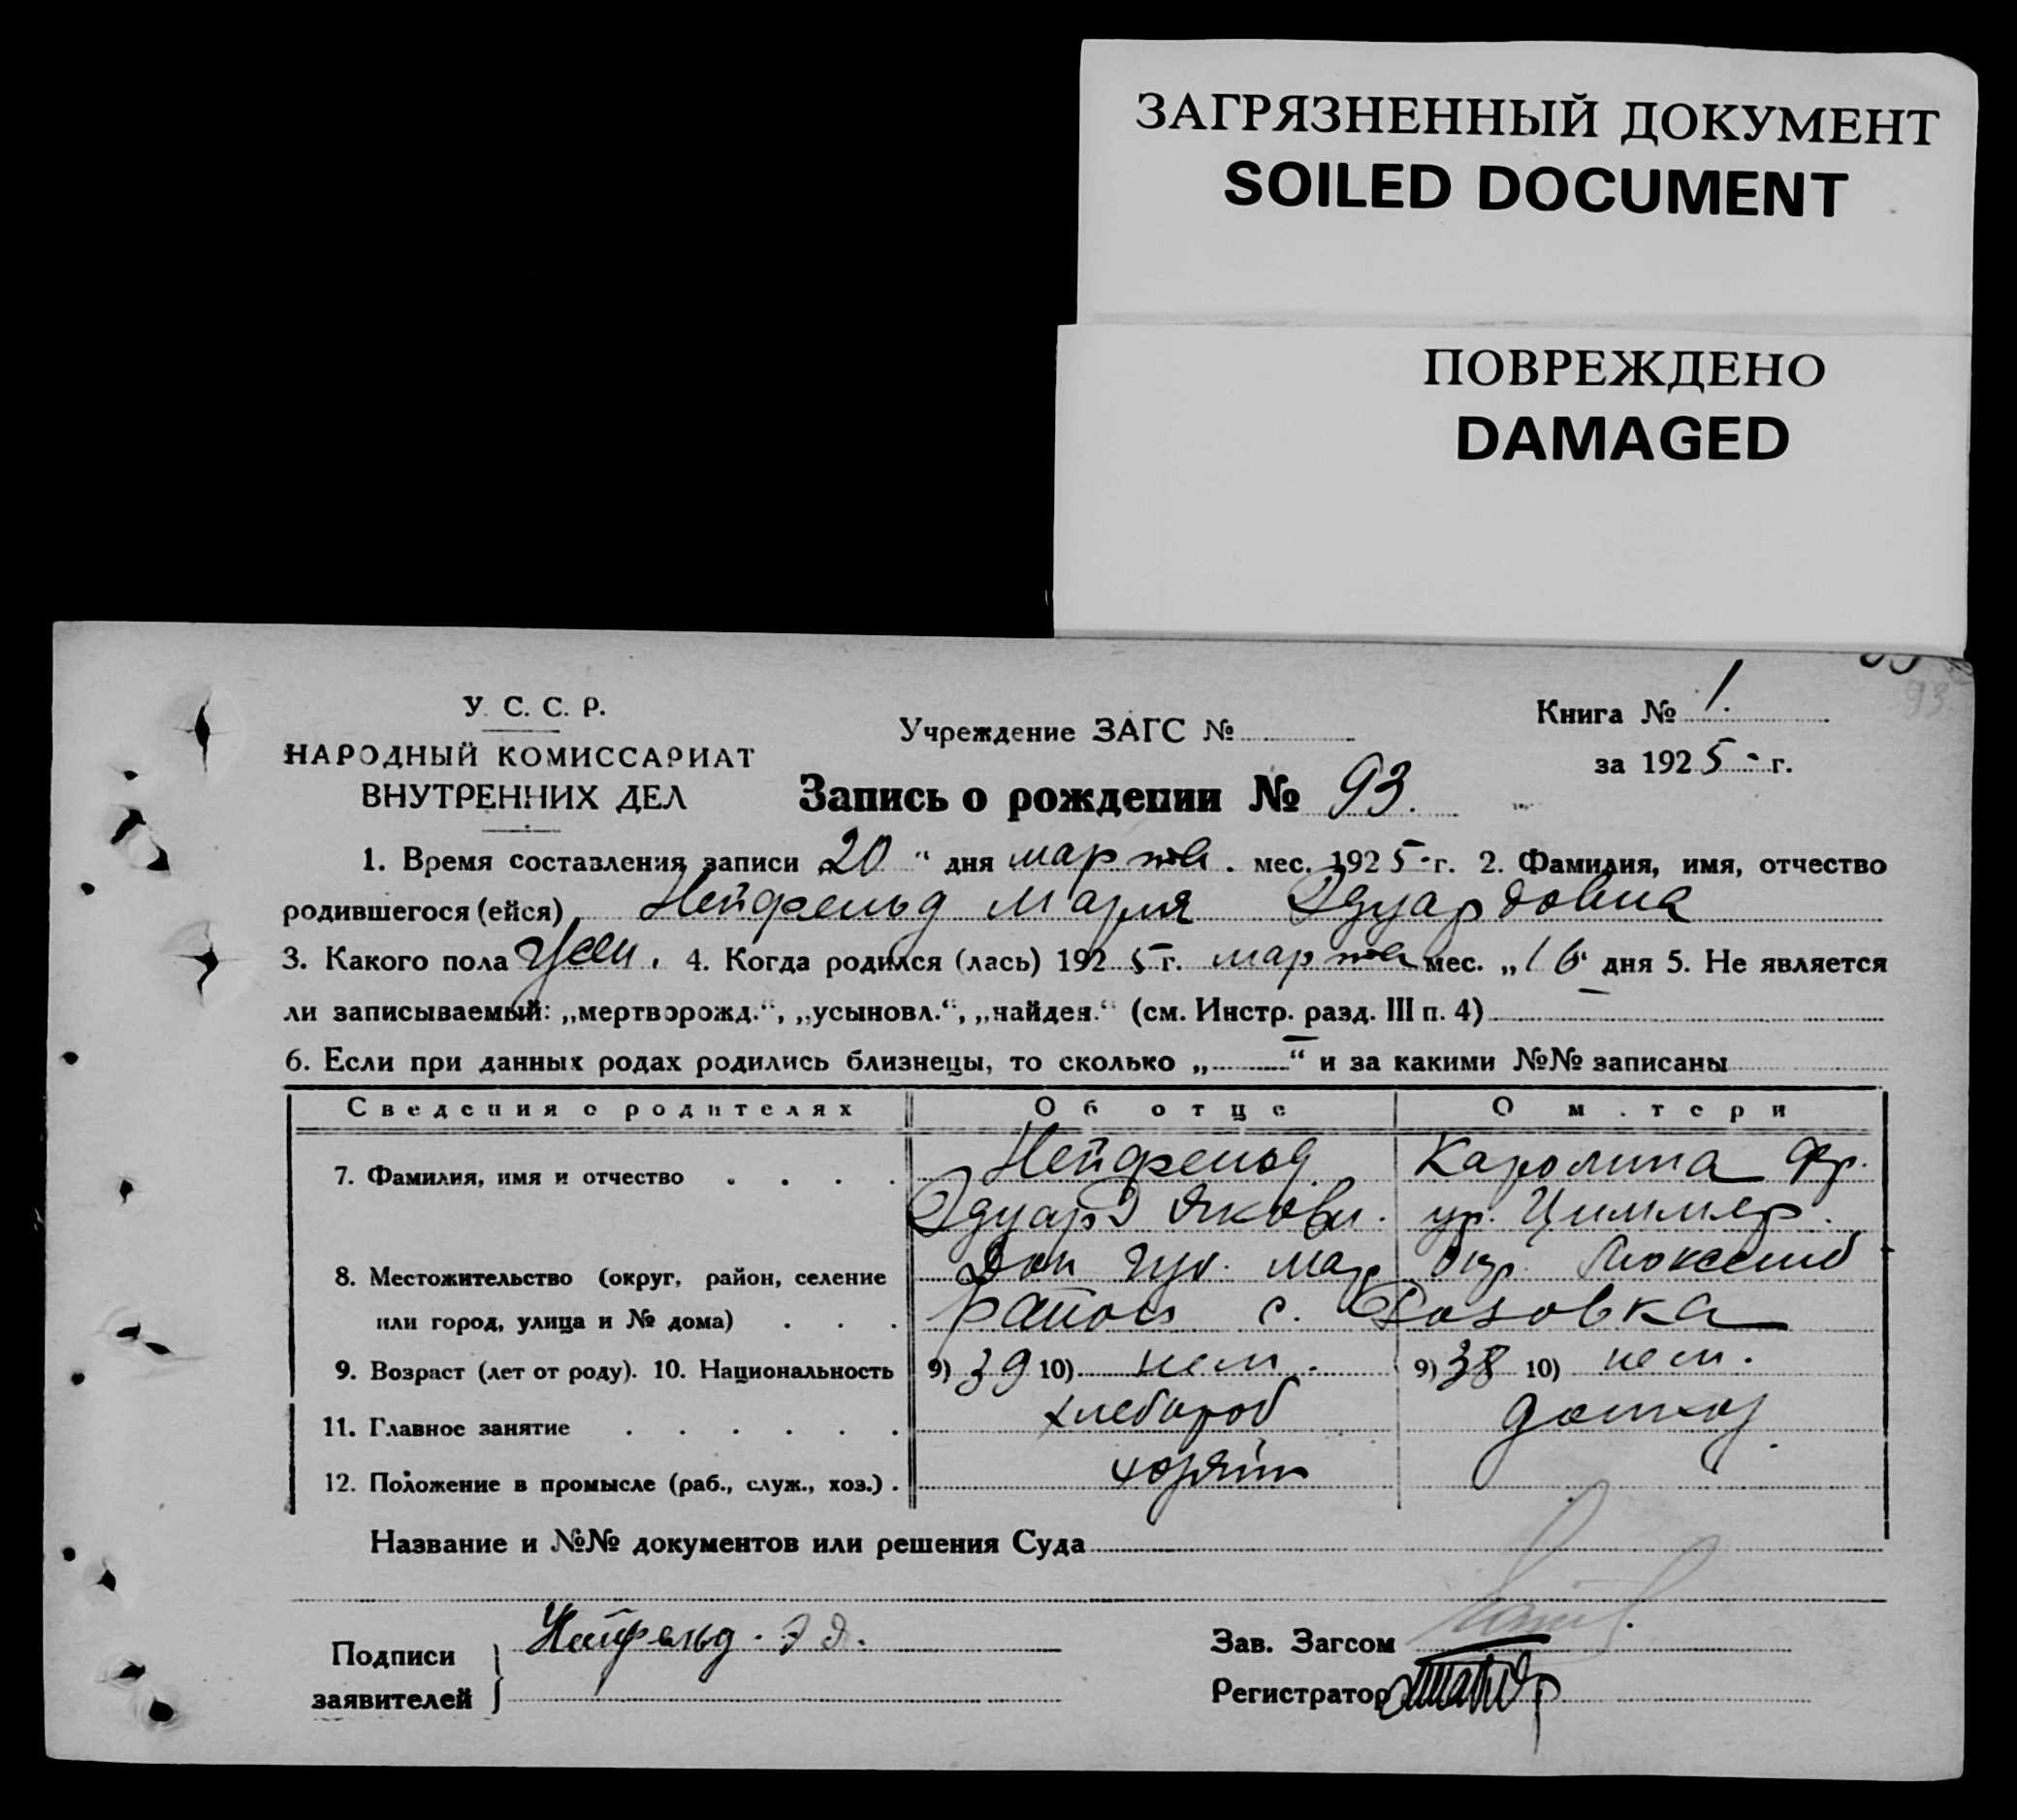 ЗАГРЯЗНЕННЫЙ ДОКУМЕНТ
SOILED DOCUMENT
ПОВРЕЖДЕНО
DAMAGED
93
У. С. С. Р.
НАРОДНЫЙ КОМИССАРИАТ
ВНУТРЕННИХ ДЕЛ
Учреждение ЗАГС №
Книга № 1.
за 1925 г.
Запись о рождении № 93.
1. Время составления записи „20“ дня марта. мес. 1925 г. 2. Фамилия, имя, отчество
родившегося (ейся) Нейфельд Мария Эдуардовна
3. Какого пола жен. 4. Когда родился (лась) 1925 г. марта мес. „16“ дня 5. Не является
ли записываемый: „мертворожд.“, „усыновл.“, „найден.“ (см. Инстр. разд. III п. 4) —
6. Если при данных родах родились близнецы, то сколько „—“ и за какими №№ записаны
Сведения о родителях Об отце О м.тери
7. Фамилия, имя и отчество . . . . Нейфельд Каролина Фр.
Эдуард Яковл. ур. Циммер.
8. Местожительство (округ, район, селение Дон губ. Мар. окр.
или город, улица и № дома) . . . район с. Розовка
9. Возраст (лет от роду). 10. Национальность 9) 39 10) нем. 9) 38 10) нем.
11. Главное занятие . . . . . . хлебороб домхоз.
12. Положение в промысле (раб., служ., хоз.) . хозяин
Название и №№ документов или решения Суда
Подписи
заявителей
Нейфельд. Эд.
Зав. Загсом
Регистратор